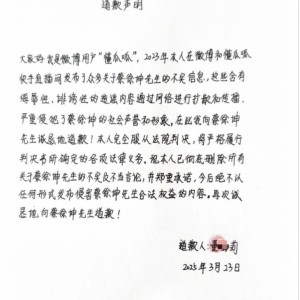 道歉声明
大家好,我是微博用户“懂瓜呱”,2023年本人在微博和懂瓜呱
快手直播间发布了众多关于蔡徐坤先生的不实信息,这些含有
侮辱性、诽谤性的造谣内容通过网络进行扩散和传播,
严重侵犯了蔡徐坤的社会声誉和形象,在此我向蔡徐坤
先生诚恳地道歉!本人完全服从法院判决,将严格履行
判决书所确定的各项法律义务,现本人已彻底删除所有
关于蔡徐坤先生的不实及不当言论,并郑重承诺,今后绝不以
任何形式发布侵害蔡徐坤先生合法权益的内容。再次诚
恳地向蔡徐坤先生道歉!
道歉人:董 莉
2025年3月23日